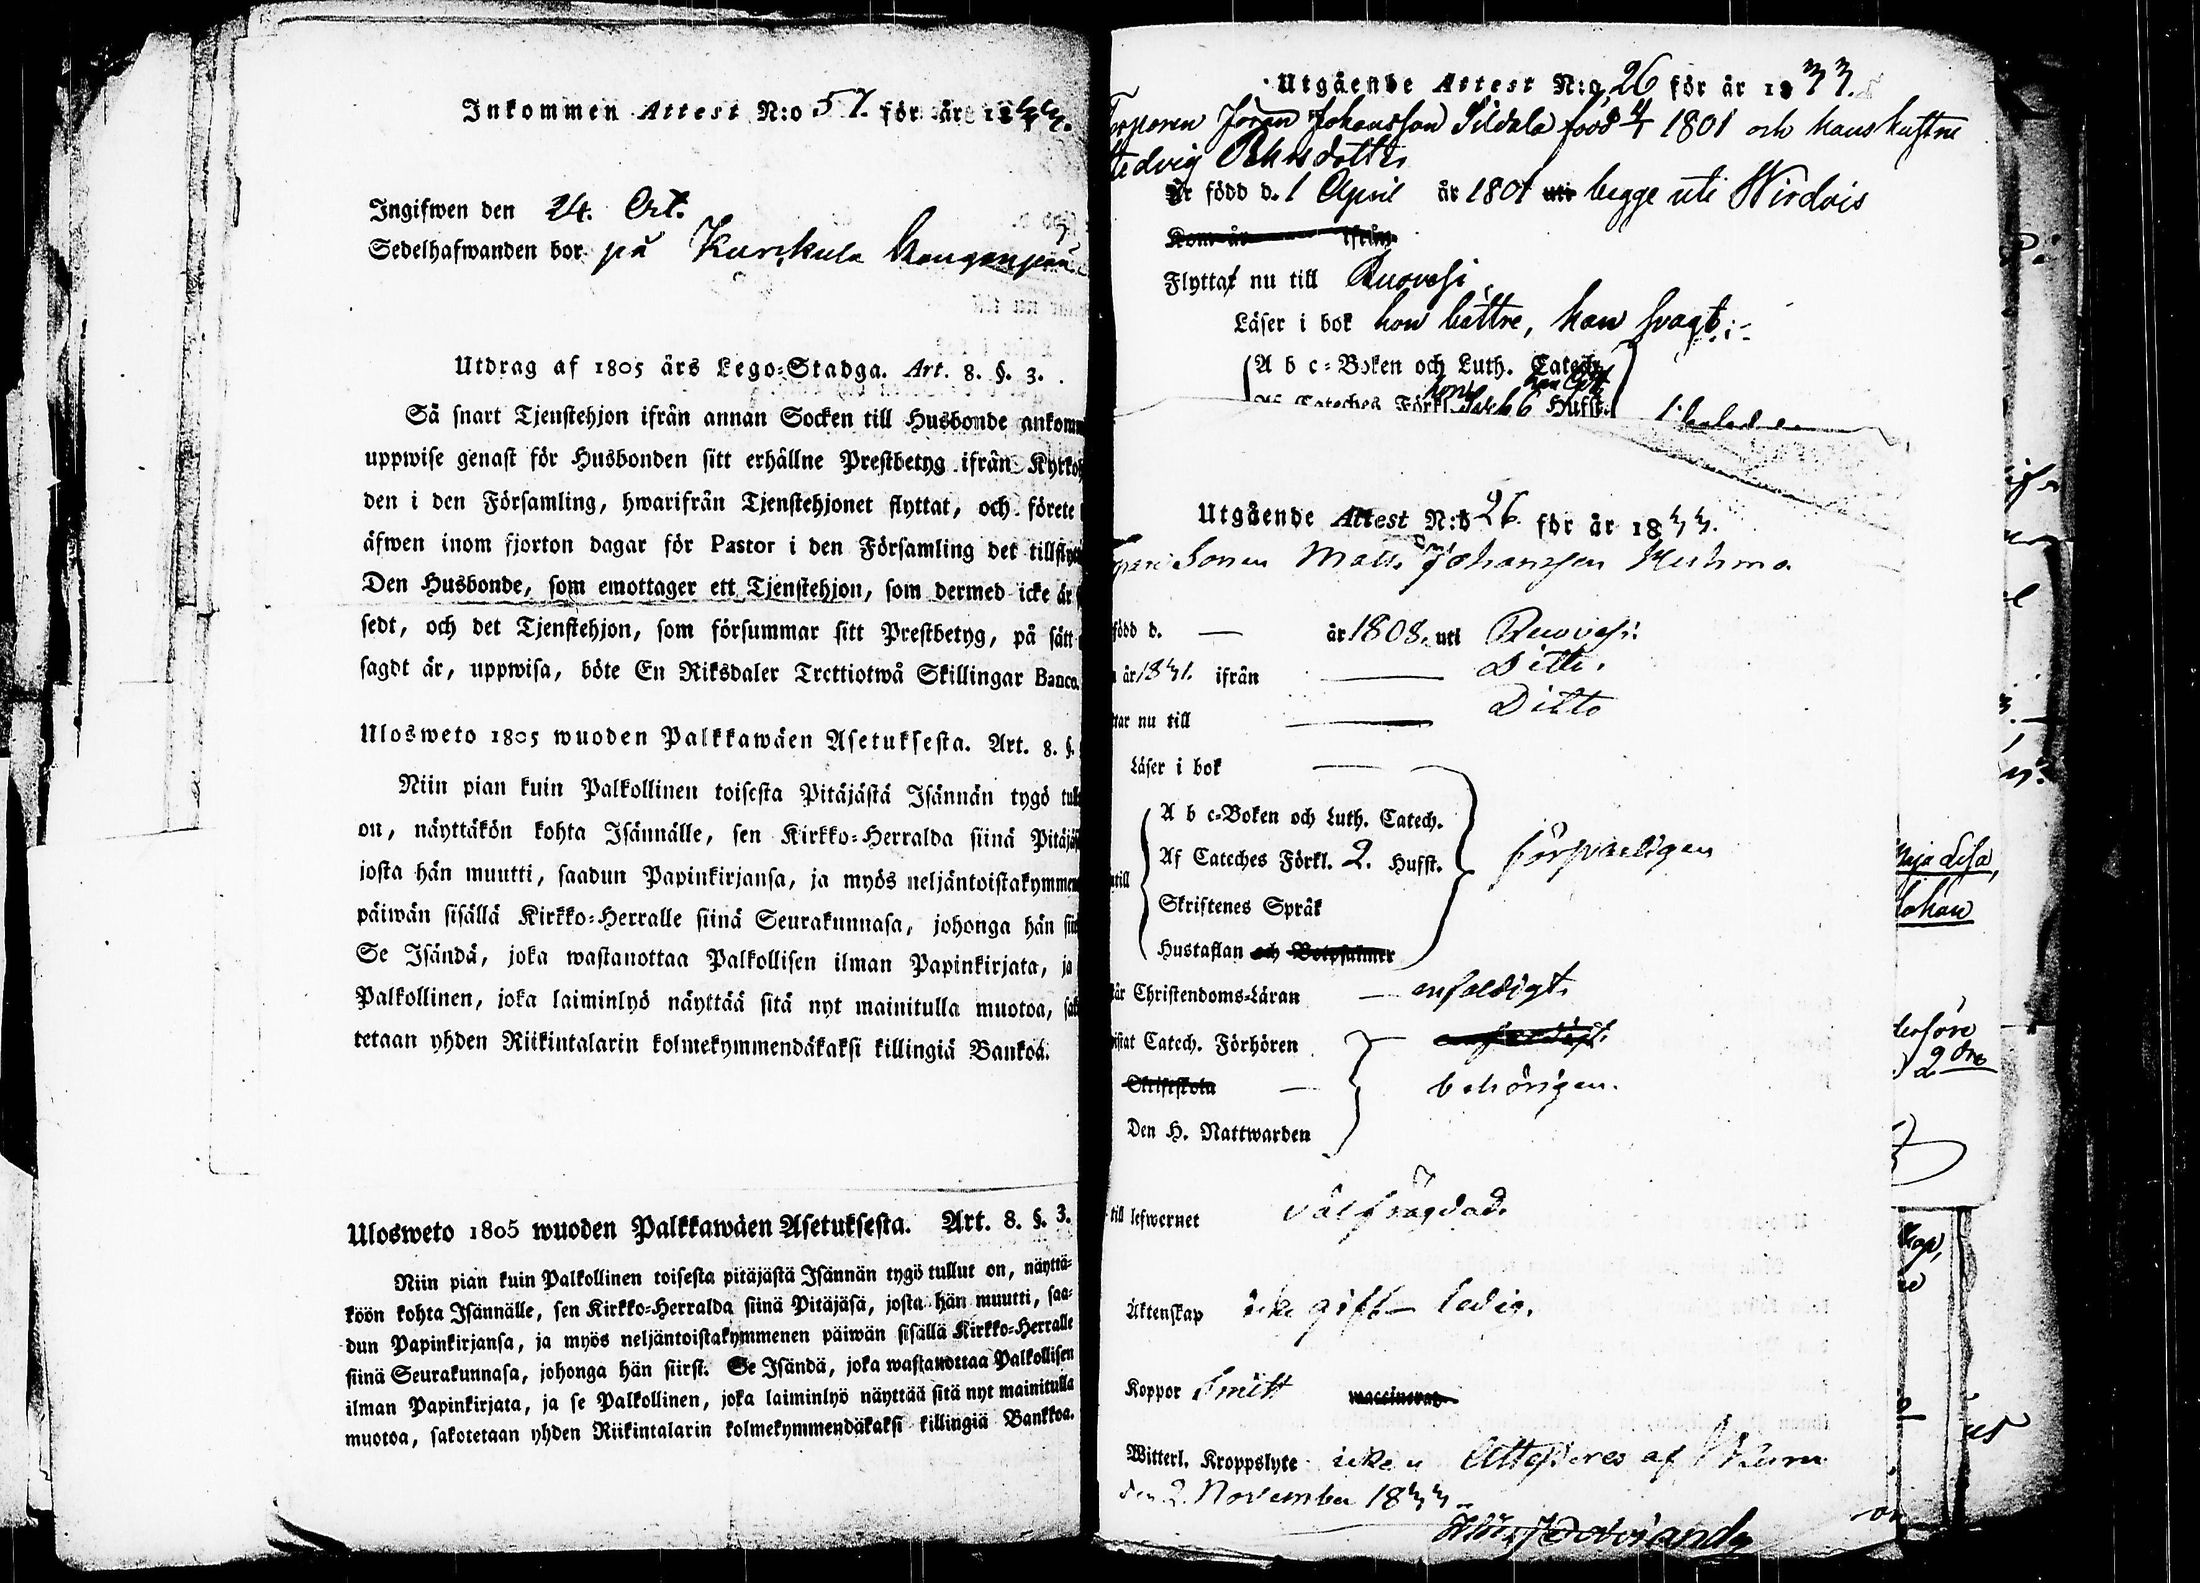 Inkommen Attest N:o 57. för år 1833.
Ingifwen den 24. Oct.
Sedelhafwanden bor på Kurkula
Utdrag af 1805 års Lego-Stadga. Art. 8. §. 3.
Så snart Tjenstehjon ifrån annan Socken till Husbonde ankomm
uppwise genast för Husbonden sitt erhållne Prestbetyg ifrån Kyrko
den i den Församling, hwarifrån Tjenstehjonet flyttat, och förete
äfwen inom fjorton dagar för Pastor i den Församling det tillfly
Den Husbonde, som emottager ett Tjenstehjon, som dermed icke är
sedt, och det Tjenstehjon, som försummar sitt Prestbetyg, på sätt
sagdt är, uppwisa, böte En Riksdaler Trettiotwå Skillingar Banco.
Ulosweto 1805 wuoden Palkkawäen Asetuksesta. Art. 8. §.
Niin pian kuin Palkollinen toisesta Pitäjästä Isännän tygö tull
on, näyttäkön kohta Isännälle, sen Kirkko-Herralda siinä Pitäjäs
josta hän muutti, saadun Papinkirjansa, ja myös neljäntoistakymmen
päiwän sisällä Kirkko-Herralle siinä Seurakunnasa, johonga hän sii
Se Isändä, joka wastanottaa Palkollisen ilman Papinkirjata, ja
Palkollinen, joka laiminlyö näyttää sitä nyt mainitulla muotoa, sak
tetaan yhden Riikintalarin kolmekymmendäkaksi killingiä Bankoa.
Ulosweto 1805 wuoden Palkkawäen Asetuksesta. Art. 8. §. 3.
Niin pian kuin Palkollinen toisesta pitäjästä Isännän tygö tullut on, näyttä-
köön kohta Isännälle, sen Kirkko-Herralda siinä Pitäjäsä, josta hän muutti, saa-
dun Papinkirjansa, ja myös neljäntoistakymmenen päiwän sisällä Kirkko-Herralle
siinä Seurakunnasa, johonga hän siirst. Se Isändä, joka wastanottaa Palkollisen
ilman Papinkirjata, ja se Palkollinen, joka laiminlyö näyttää sitä nyt mainitulla
muotoa, sakotetaan yhden Riikintalarin kolmekymmendäkaksi killingiä Bankkoa.
Utgående Attest N:o 26 för år 1833.
Torparen Jöran Johansson Sildala född 4/1 1801 och hans hustru
Hedvig
Är född d. 1 April år 1801 uti begge uti Wirdois
Kom år ifrån
Flyttat nu till Ruovesi
Läser i bok hon bättre, han svagt
A b c-Boken och Luth. Catech.
Af Cateches Förkl. 6 Hufst.
Utgående Attest N:o 26. för år 1833.
Sonen Matts Johansson Kuhmo.
född d. — år 1808. uti Ruovesi
år 1831. ifrån — Ditto.
tar nu till — Ditto
Läser i bok —
A b c-Boken och Luth. Catech.
Af Cateches Förkl. 2. Hufst. försvarligen
till
Skriftenes Språk
Hustaflan och Botpsalmer
år Christendoms-Läran — enfaldigt.
istat Catech. Förhören — enfaldigt.
Skriftskola — behörigen.
Den H. Nattwarden
till lefwernet välfrägdad.
Äktenskap icke gift – ledig.
Koppor Smitt waccinerad
Witterl. Kroppslyte icke Attesteres af
den 2. November 1833.
Maja Lisa,
Johan